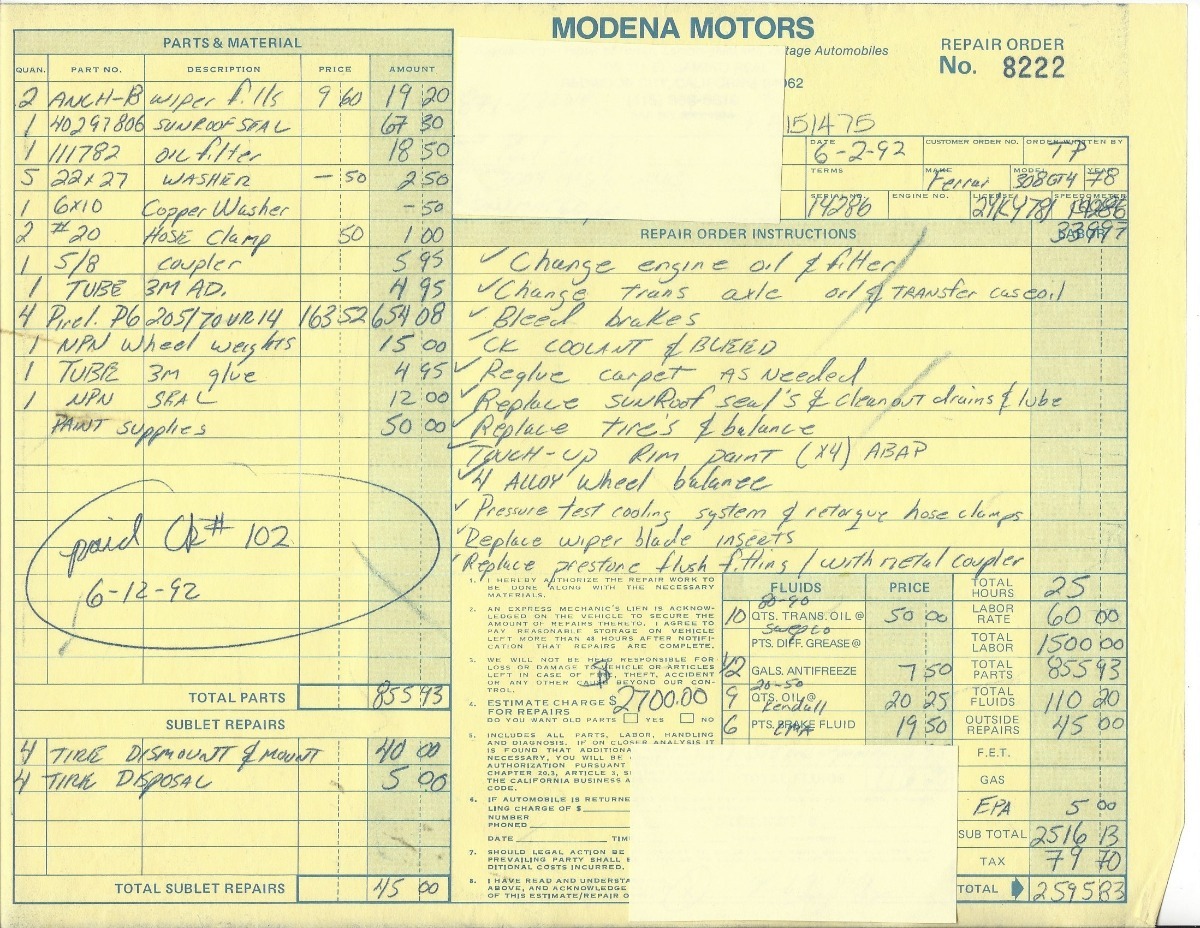 MODENA MOTORS
tage Automobiles
962
REPAIR ORDER
No. 8222
151475
DATE 6-2-92 CUSTOMER ORDER NO. ORDER WRITTEN BY TP
TERMS MAKE Ferrari MODEL 308GT4 YEAR 78
SERIAL NO. 14286 ENGINE NO. LICENSE SPEEDOMETER
33997
PARTS & MATERIAL
QUAN. PART NO. DESCRIPTION PRICE AMOUNT
2 ANCH-B wiper fills 9 60 19 20
1 40297806 SUNROOF SEAL 67 30
1 111782 oil filter 18 50
5 22x27 WASHER — 50 2 50
1 6x10 Copper Washer — 50
2 #20 HOSE Clamp 50 1 00
1 5/8 coupler 5 95
1 TUBE 3M AD. 4 95
4 Pirel. P6 205/70VR14 163 52 654 08
1 NPN Wheel weights 15 00
1 TUBE 3M glue 4 95
1 NPN SEAL 12 00
PAINT supplies 50 00
paid Ck# 102
6-12-92
TOTAL PARTS 855 93
SUBLET REPAIRS
4 TIRE DISMOUNT & MOUNT 40 00
4 TIRE DISPOSAL 5 00
TOTAL SUBLET REPAIRS 45 00
REPAIR ORDER INSTRUCTIONS LABOR
✓ Change engine oil & filter
✓ Change trans axle oil & TRANSfer case oil
✓ Bleed brakes
✓ CK COOLANT & BLEED
✓ Reglue carpet AS Needed
✓ Replace SUNRoof seal's & clean out drains & lube
✓ Replace tire's & balance
✓ TOUCH-UP Rim paint (X4) ABAP
✓ 4 ALLOY wheel balance
✓ Pressure test cooling system & retorque hose clamps
✓ Replace wiper blade inserts
✓ Replace prestone flush fitting / with metal coupler
1. I HEREBY AUTHORIZE THE REPAIR WORK TO
BE DONE ALONG WITH THE NECESSARY
MATERIALS.
2. AN EXPRESS MECHANIC'S LIEN IS ACKNOW-
LEDGED ON THE VEHICLE TO SECURE THE
AMOUNT OF REPAIRS THERETO. I AGREE TO
PAY REASONABLE STORAGE ON VEHICLE
LEFT MORE THAN 48 HOURS AFTER NOTIFI-
CATION THAT REPAIRS ARE COMPLETE.
3. WE WILL NOT BE HELD RESPONSIBLE FOR
LOSS OR DAMAGE TO VEHICLE OR ARTICLES
LEFT IN CASE OF FIRE, THEFT, ACCIDENT
OR ANY OTHER CAUSE BEYOND OUR CON-
TROL.
4. ESTIMATE CHARGE $ 2700.00
FOR REPAIRS
DO YOU WANT OLD PARTS YES NO
5. INCLUDES ALL PARTS, LABOR, HANDLING
AND DIAGNOSIS. IF ON CLOSER ANALYSIS IT
IS FOUND THAT ADDITIONA
NECESSARY, YOU WILL BE
AUTHORIZATION PURSUANT
CHAPTER 20.3, ARTICLE 3, S
THE CALIFORNIA BUSINESS A
CODE.
6. IF AUTOMOBILE IS RETURNE
LING CHARGE OF $
NUMBER
PHONED
DATE TIM
7. SHOULD LEGAL ACTION BE
PREVAILING PARTY SHALL
DITIONAL COSTS INCURRED.
8. I HAVE READ AND UNDERSTA
ABOVE, AND ACKNOWLEDGE
OF THIS ESTIMATE/REPAIR O
FLUIDS PRICE
80-90
10 QTS. TRANS. OIL @ 50 00
Swepco
PTS. DIFF. GREASE @
1/2 GALS. ANTIFREEZE 7 50
20-50
9 QTS. OIL @ 20 25
Kendall
6 PTS. BRAKE FLUID 19 50
TOTAL HOURS 25
LABOR RATE 60 00
TOTAL LABOR 1500 00
TOTAL PARTS 855 93
TOTAL FLUIDS 110 20
OUTSIDE REPAIRS 45 00
F.E.T.
GAS
EPA 5 00
SUB TOTAL 2516 13
TAX 79 70
TOTAL 2595 83